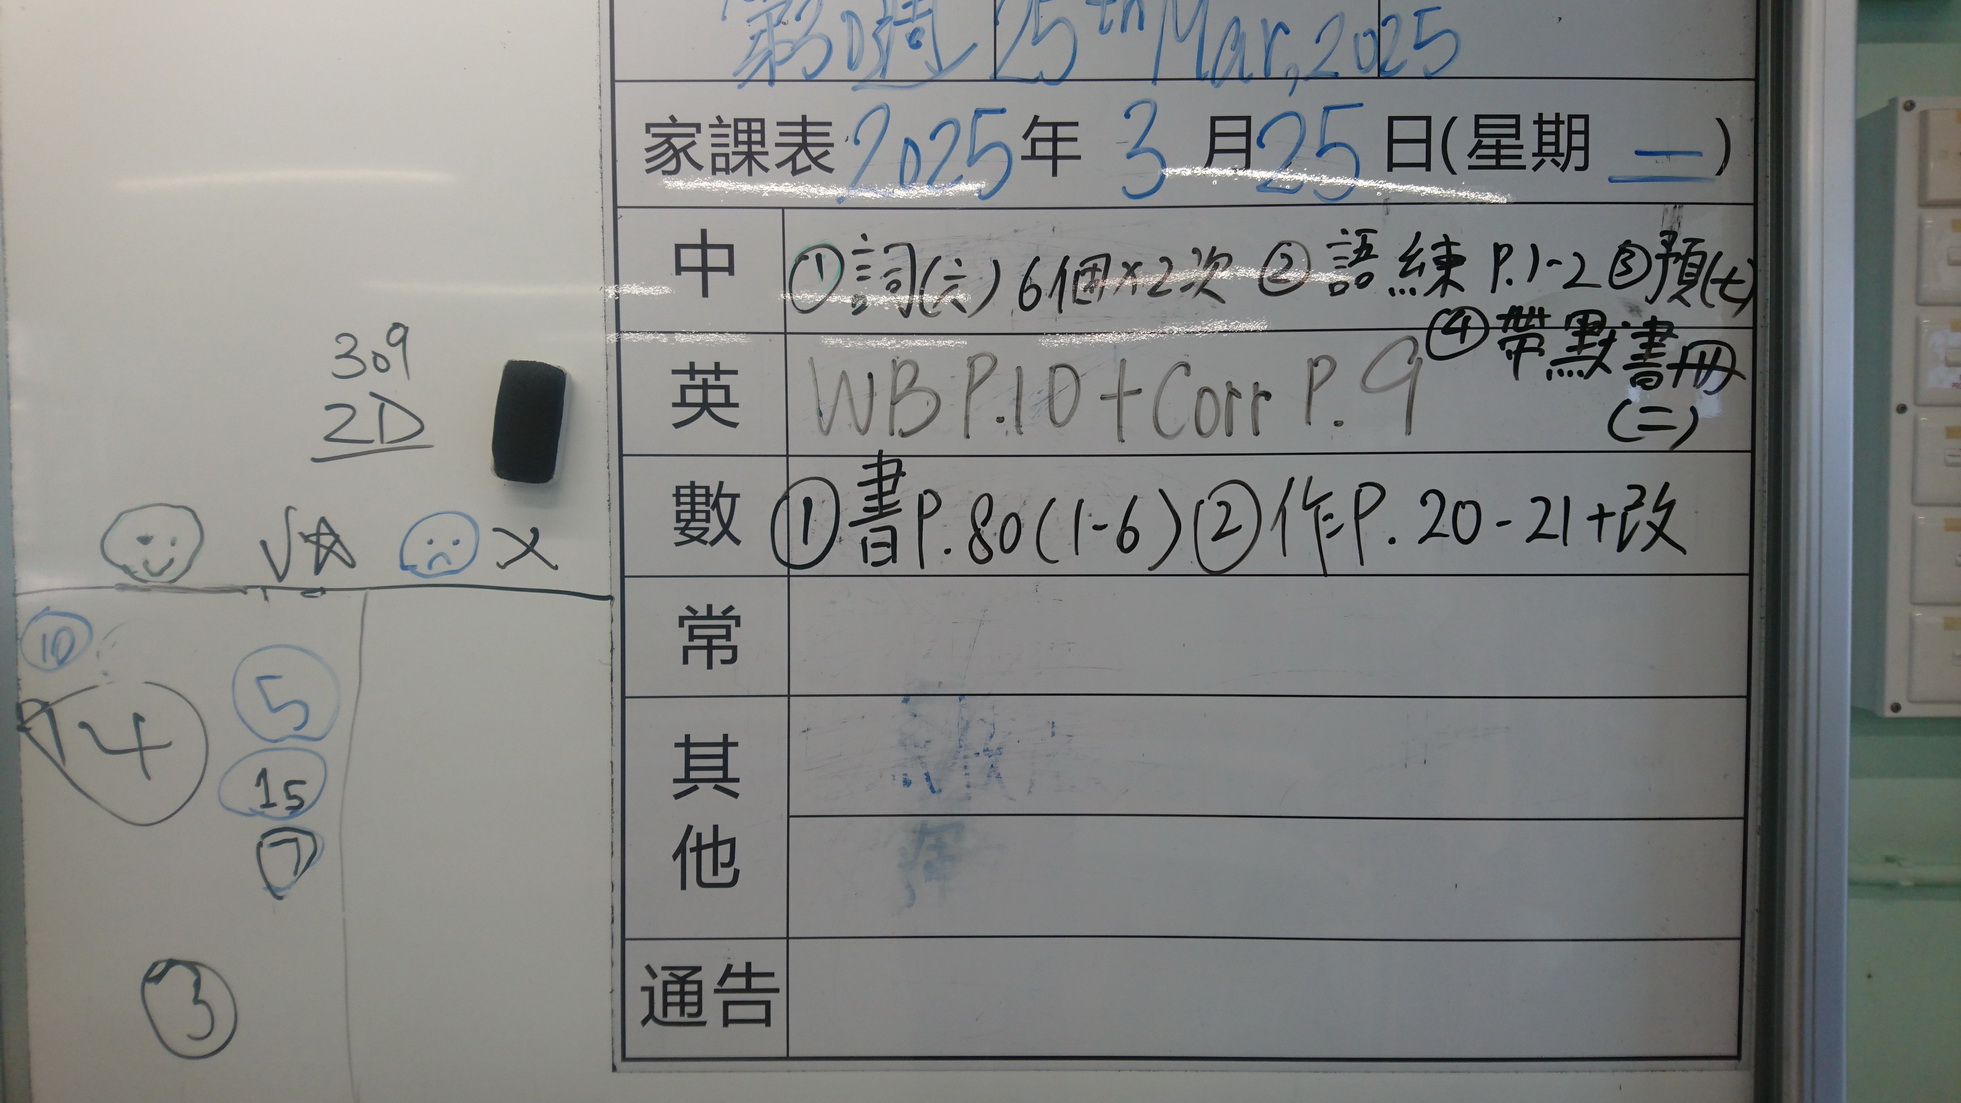 第30週 25th Mar, 2025
家課表 2025年 3月25日(星期二)
中 ①詞(六)6個×2次 ②語練 P.1-2 ③預(七)
④帶默書冊
(二)
英 WB P.10+Corr P.9
數 ①書P.80(1-6) ②作P.20-21+改
常
其他
通告
309
2D
10
14
5
15
7
3